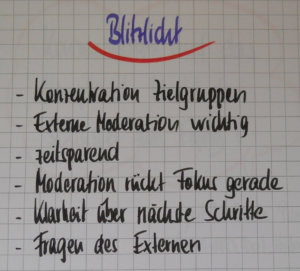 Blitzlicht
- Konzentration Zielgruppen
- Externe Moderation wichtig
- zeitsparend
- Moderation rückt Fokus gerade
- Klarheit über nächste Schritte
- Fragen des Externen